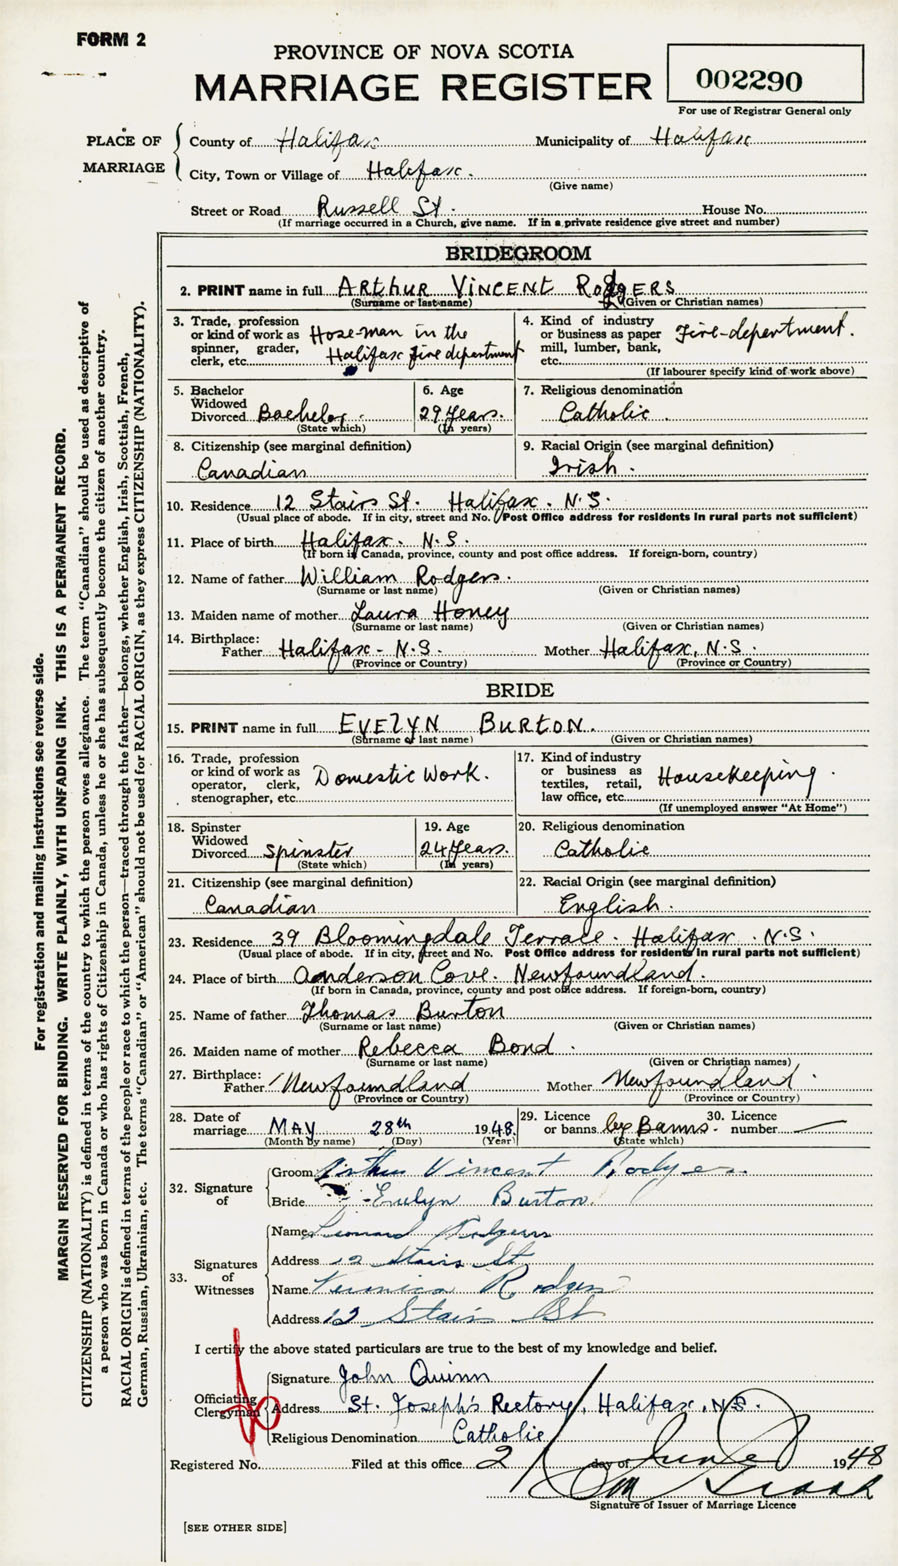 FORM 2
PROVINCE OF NOVA SCOTIA
MARRIAGE REGISTER
002290
For use of Registrar General only
PLACE OF MARRIAGE
County of Halifax Municipality of Halifax
City, Town or Village of Halifax.
(Give name)
Street or Road Russell St. House No.
(If marriage occurred in a Church, give name. If in a private residence give street and number)
BRIDEGROOM
2. PRINT name in full ARTHUR VINCENT RODGERS
(Surname or last name) (Given or Christian names)
3. Trade, profession or kind of work as spinner, grader, clerk, etc. Hose-man in the Halifax fire department
4. Kind of industry or business as paper mill, lumber, bank, etc. Fire-depertment.
(If labourer specify kind of work above)
5. Bachelor Widowed Divorced Bachelor.
(State which)
6. Age 29 Years.
(In years)
7. Religious denomination Catholic.
8. Citizenship (see marginal definition) Canadian
9. Racial Origin (see marginal definition) Irish.
10. Residence 12 Stairs St. Halifax. N.S.
(Usual place of abode. If in city, street and No. Post Office address for residents in rural parts not sufficient)
11. Place of birth Halifax. N.S.
(If born in Canada, province, county and post office address. If foreign-born, country)
12. Name of father William Rodgers.
(Surname or last name) (Given or Christian names)
13. Maiden name of mother Laura Honey
(Surname or last name) (Given or Christian names)
14. Birthplace:
Father Halifax - N.S. Mother Halifax, N.S.
(Province or Country) (Province or Country)
BRIDE
15. PRINT name in full EVELYN BURTON.
(Surname or last name) (Given or Christian names)
16. Trade, profession or kind of work as operator, clerk, stenographer, etc. Domestic Work.
17. Kind of industry or business as textiles, retail, law office, etc. Housekeeping.
(If unemployed answer "At Home")
18. Spinster Widowed Divorced Spinster
(State which)
19. Age 24 Years.
(In years)
20. Religious denomination Catholic
21. Citizenship (see marginal definition) Canadian
22. Racial Origin (see marginal definition) English.
23. Residence 39 Bloomingdale Terrace. Halifax. N.S.
(Usual place of abode. If in city, street and No. Post Office address for residents in rural parts not sufficient)
24. Place of birth Anderson Cove. Newfoundland.
(If born in Canada, province, county and post office address. If foreign-born, country)
25. Name of father Thomas Burton
(Surname or last name) (Given or Christian names)
26. Maiden name of mother Rebecca Bond.
(Surname or last name) (Given or Christian names)
27. Birthplace:
Father Newfoundland Mother Newfoundland.
(Province or Country) (Province or Country)
28. Date of marriage MAY 28th 1948
(Month by name) (Day) (Year)
29. Licence or banns by Banns.
(State which)
30. Licence number —
32. Signature of
Groom Arthur Vincent Rodgers.
Bride Evelyn Burton.
33. Signatures of Witnesses
Name Leonard Rodgers
Address 12 Stairs St
Name Veronica Rodgers
Address 12 Stairs St
I certify the above stated particulars are true to the best of my knowledge and belief.
Officiating Clergyman
Signature John Quinn
Address St. Joseph's Rectory, Halifax, N.S.
Religious Denomination Catholic
Registered No. Filed at this office 2 day of June 1948
Signature of Issuer of Marriage Licence
[SEE OTHER SIDE]
For registration and mailing instructions see reverse side.
MARGIN RESERVED FOR BINDING. WRITE PLAINLY, WITH UNFADING INK. THIS IS A PERMANENT RECORD.
CITIZENSHIP (NATIONALITY) is defined in terms of the country to which the person owes allegiance. The term "Canadian" should be used as descriptive of
a person who was born in Canada or who has rights of Citizenship in Canada, unless he or she has subsequently become the citizen of another country.
RACIAL ORIGIN is defined in terms of the people or race to which the person—traced through the father—belongs, whether English, Irish, Scottish, French,
German, Russian, Ukrainian, etc. The terms "Canadian" or "American" should not be used for RACIAL ORIGIN, as they express CITIZENSHIP (NATIONALITY).